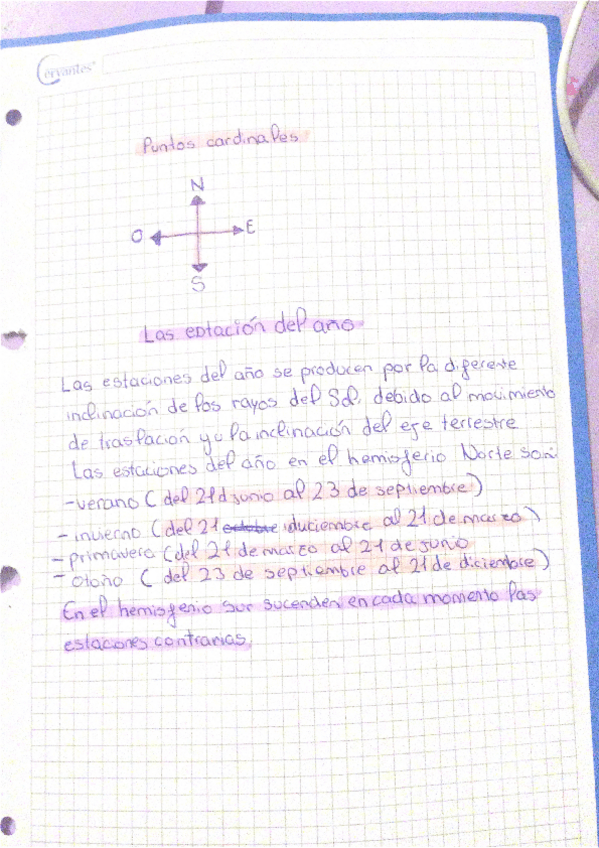 Cervantes
Puntos cardinales
N
O E
S
Las estación del año
Las estaciones del año se producen por la diferente
inclinación de los rayos del Sol, debido al movimiento
de traslación y a la inclinación del eje terrestre
Las estaciones del año en el hemisferio Norte son:
-verano ( del 21 d junio al 23 de septiembre)
- invierno (del 21 octubre diciembre al 21 de marzo)
- primavera (del 21 de marzo al 21 de junio
- otoño ( del 23 de septiembre al 21 de diciembre)
En el hemisferio sur sucenden en cada momento las
estaciones contrarias.